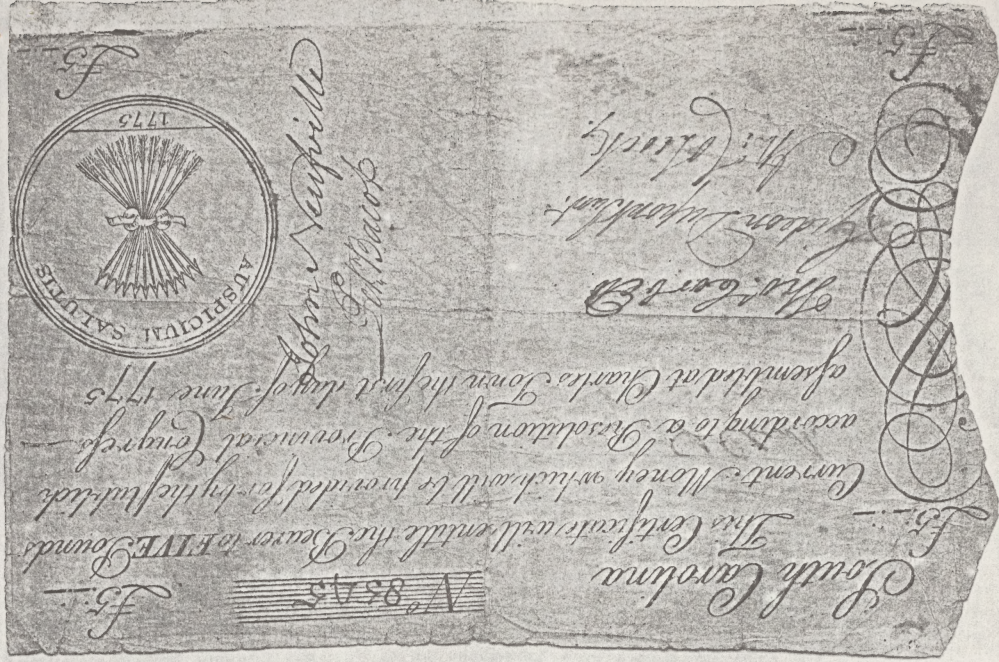 South Carolina
Nº 8545
£5:..:..
This Certificate will entitle the Bearer to FIVE Pounds
£5:..:..
Current Money which will be provided for by the Publick
according to a Resolution of the Provincial Congress
assembled at Charles Town the first day of June 1775
Tho.s Corbett
Gideon Dupont Junr.
John Neufville
Pet. Bacot
AUSPICIUM SALUTIS
1775
£5:..:..
£5:..:..